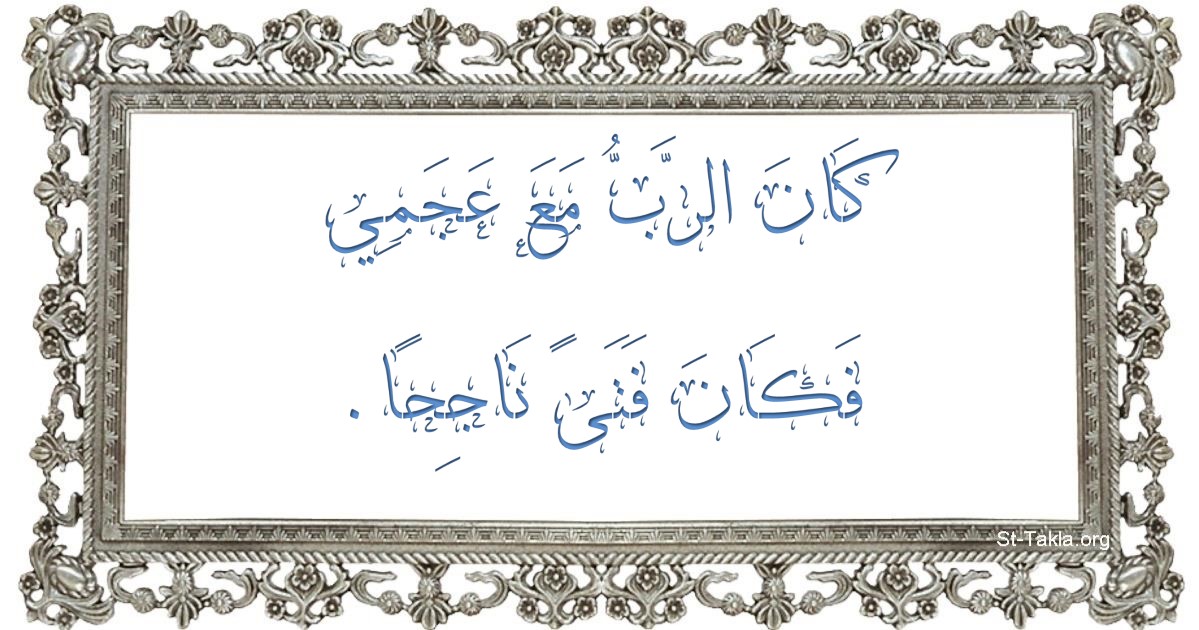 كَانَ الرَّبُّ مَعَ عَجَمِي
فَكَانَ فَتَىً نَاجِحًا .
St-Takla.org